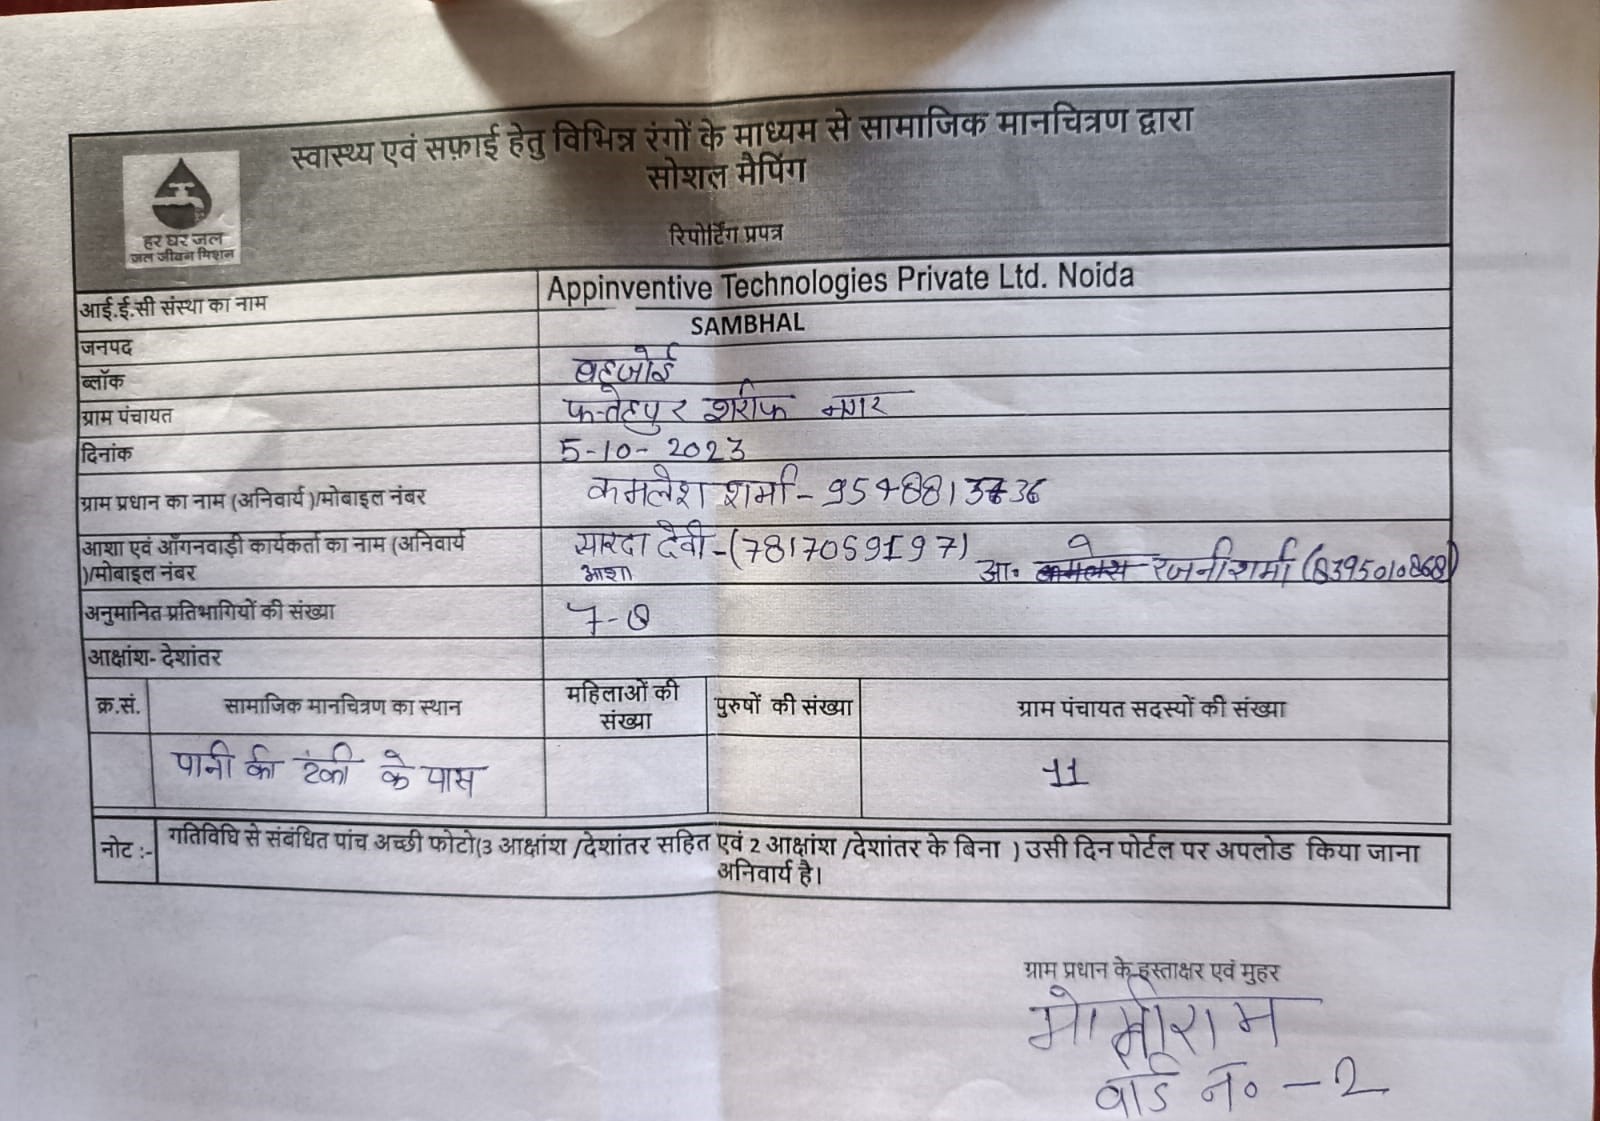 स्वास्थ्य एवं सफ़ाई हेतु विभिन्न रंगों के माध्यम से सामाजिक मानचित्रण द्वारा
सोशल मैपिंग
रिपोर्टिंग प्रपत्र
हर घर जल
जल जीवन मिशन
आई.ई.सी संस्था का नाम Appinventive Technologies Private Ltd. Noida
जनपद SAMBHAL
ब्लॉक बहजोई
ग्राम पंचायत फतेहपुर शरीफ नगर
दिनांक 5-10-2023
ग्राम प्रधान का नाम (अनिवार्य )/मोबाइल नंबर कमलेश शर्मा -
आशा एवं आँगनवाड़ी कार्यकर्ता का नाम (अनिवार्य
)/मोबाइल नंबर
सारदा देवी - (7817059197)
आशा
आ. रजनी शर्मा (8395010868)
अनुमानित प्रतिभागियों की संख्या 7-8
आक्षांश- देशांतर
क्र.सं. सामाजिक मानचित्रण का स्थान महिलाओं की संख्या पुरुषों की संख्या ग्राम पंचायत सदस्यों की संख्या
पानी की टंकी के पास 11
नोट :- गतिविधि से संबंधित पांच अच्छी फोटो(3 आक्षांश /देशांतर सहित एवं 2 आक्षांश /देशांतर के बिना ) उसी दिन पोर्टल पर अपलोड किया जाना
अनिवार्य है।
ग्राम प्रधान के हस्ताक्षर एवं मुहर
वार्ड नं० - 2